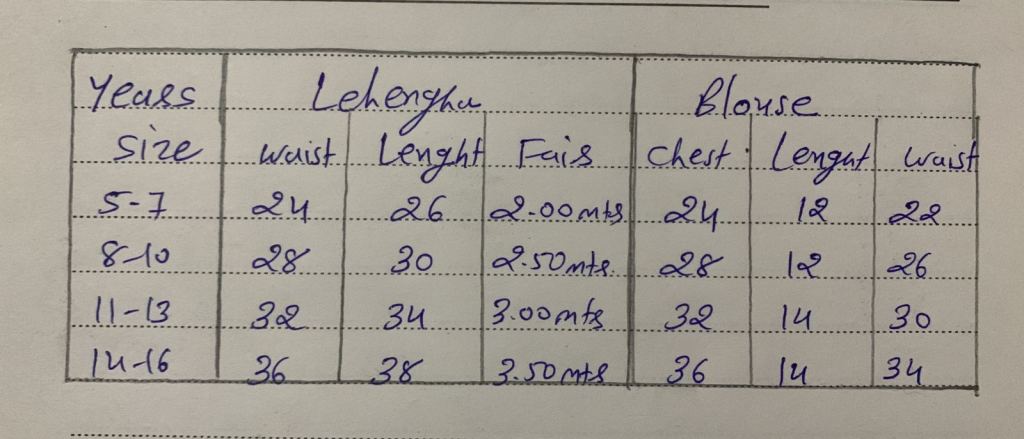 Years Lehengha Blouse
Size Waist Lenght Fair Chest Lenght Waist
5-7 24 26 2.00mts 24 12 22
8-10 28 30 2.50mts. 28 12 26
11-13 32 34 3.00mts 32 14 30
14-16 36 38 3.50mts 36 14 34